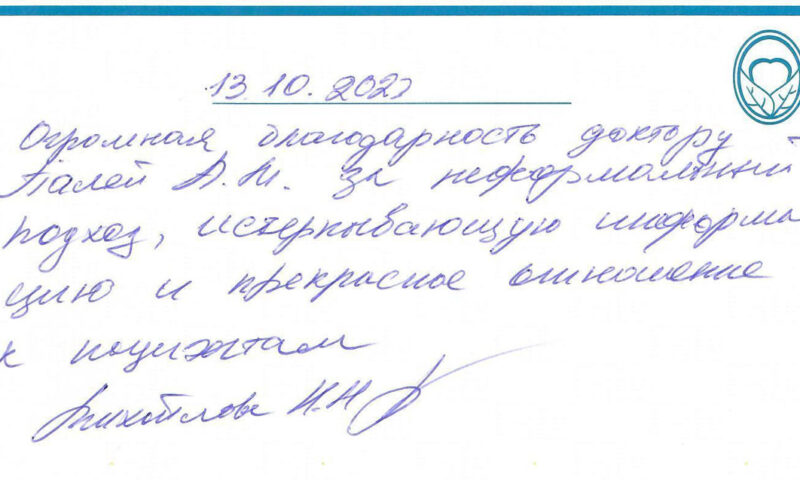 13.10.2023
Огромная благодарность доктору
Палей А.М. за неформальный
подход, исчерпывающую информа
цию и прекрасное отношение
к пациентам
Н.Н